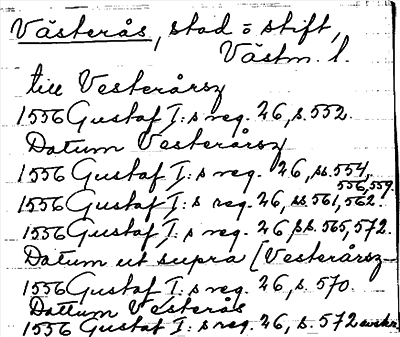 Västerås, stad o stift,
Västm. l.
till Vesterårsz
1556 Gustaf I:s reg. 26, s. 552.
Datum Vesterårsz
1556 Gustaf I:s reg. 26, ss. 554,
556, 559.
1556 Gustaf I:s reg. 26, ss. 561, 562.
1556 Gustaf I:s reg. 26, ss. 565, 572.
Datum ut supra [Vesterårsz
1556 Gustaf I:s reg. 26, s. 570.
Dattum Vesterås
1556 Gustaf I:s reg. 26, s. 572